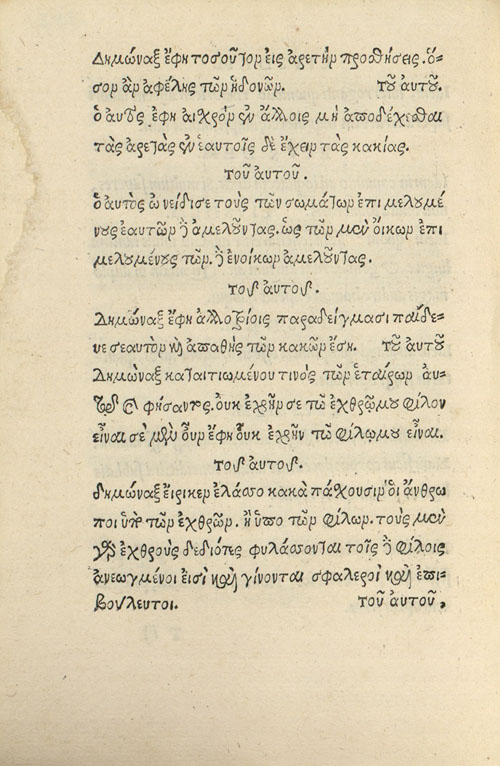 Δημώναξ ἔφη τοσοῦτον εις αρετὴν προσθήσεις. ὅ-
σον ἂν αφέλης τῶν ἡδονῶν. τοῦ αὐτοῦ.
ὁ αυτὸς ἔφη αιχρὸν ἐν ἄλλοις μὴ αποδέχεσθαι
τὰς ἀρετὰς ἐν ἑαυτοῖς δὲ ἔχειν τὰς κακίας.
τοῦ ἀυτοῦ.
ὁ αυτὸς ὠνείδισε τοὺς τῶν σωμάτων ἐπιμελουμέ
νους ἑαυτῶν δὲ ἀμελοῦντας. ὡς τῶν μὲν ὄικων ἐπι
μελουμένους τῶν. δὲ ἐνοίκων ἀμελοῦντας.
τοῦ ἀυτοῦ.
Δημώναξ ἔφη ἀλλοτρίοις παραδείγμασι παίδε-
υε σεαυτὸν καὶ ἀπαθὴς τῶν κακῶν ἔση. τοῦ ἀυτοῦ
Δημὼναξ καταιτιωμένου τινὸς τῶν ἑταίρων ἀυ-
τὸν καὶ φήσαντος. ὀυκ ἐχρῆν σε τῶ ἐχθρῶ μου φίλον
εἶναι σὲ μὲν οὖν ἔφη ὀυκ ἐχρῆν τῶ φίλω μου εἶναι.
τοῦ ἀυτοῦ.
δημώναξ ἔιρικεν ἐλάσσο κακὰ πάχουσιν ὁι ἄνθρω
ποι ὑπὸ τῶν ἐχθρῶν. ἢ ὑπὸ τῶν φίλων. τοὺς μὲν
γὰρ ἐχθροὺς δεδιότες φυλάσσονται τοῖς δὲ φίλοις
ἀνεωγμένοι ἐισὶ καὶ γίνονται σφαλεροὶ καὶ ἐπι-
βούλευτοι. τοῦ ἀυτοῦ,